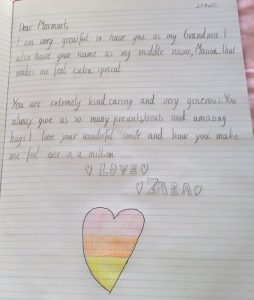 Dear Marmart,
I am very greatful to have you as my Grandma. I
also have your name as my middle name, That
makes me feel extra special.
You are extremely kind, caring and very generous. You
always give us so many presents, treats and amazing
hugs. I love your wonderful smile and how you make
me feel one in a million.
LOVE
ZARA